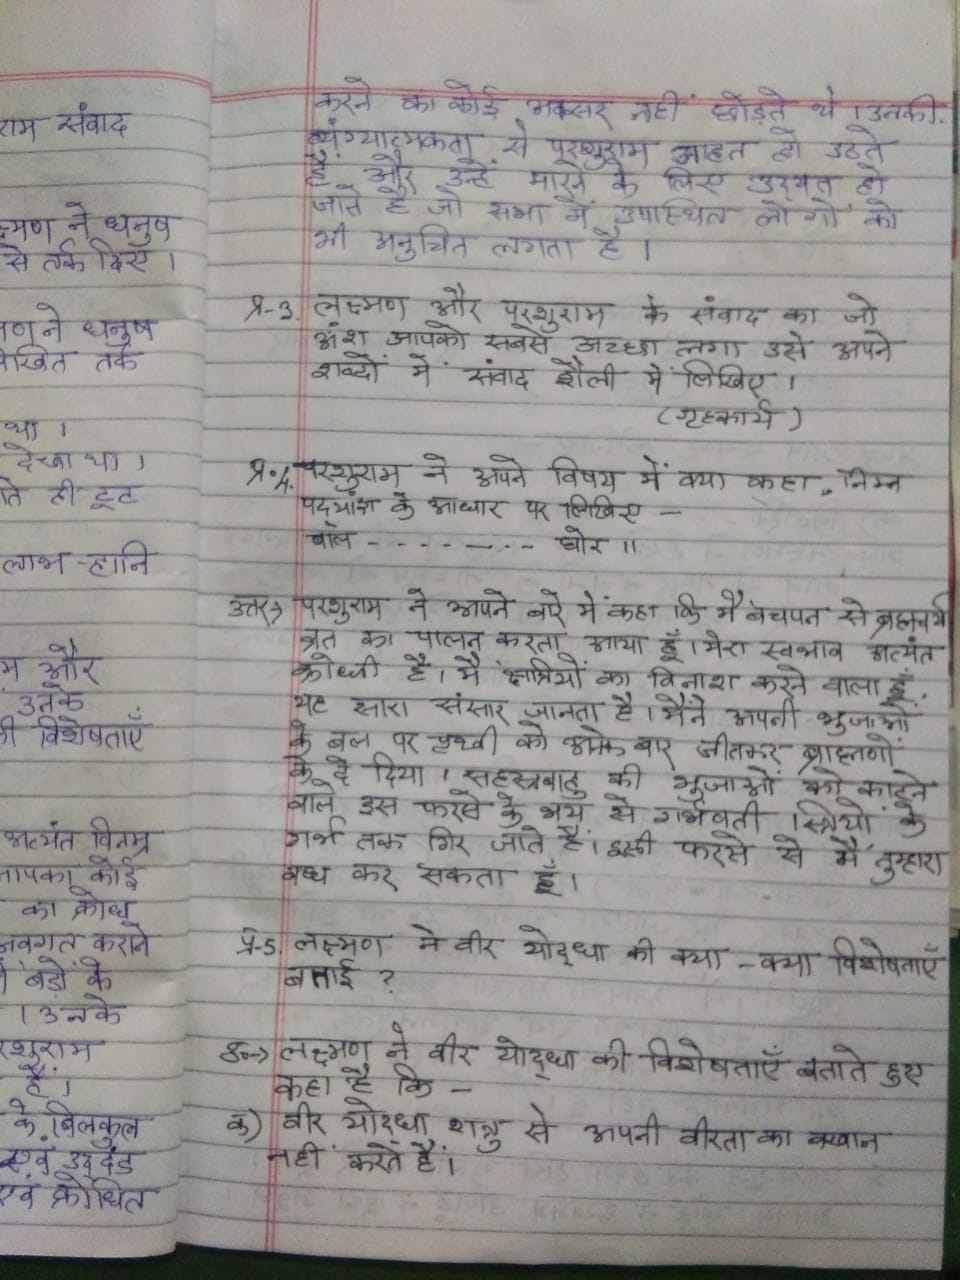 राम संवाद
क्ष्मण ने धनुष
से तर्क दिए ।
मण ने धनुष
लेखित तर्क
था ।
देखा था ।
ते ही टूट
लाभ-हानि
म और
उनके
की विशेषताएँ
अत्यंत विनम्र
आपका कोई
का क्रोध
अवगत कराने
में बड़ों के
। उनके
रशुराम
हैं ।
के बिलकुल
एवं उद्दंड
एवं क्रोधित
करने का कोई अवसर नहीं छोड़ते थे । उनकी
व्यंग्यात्मकता से परशुराम आहत हो उठते
हैं और उन्हें मारने के लिए उद्यत हो
जाते हैं जो सभा में उपस्थित लोगों को
भी अनुचित लगता है ।
प्र-3. लक्ष्मण और परशुराम के संवाद का जो
अंश आपको सबसे अच्छा लगा उसे अपने
शब्दों में संवाद शैली में लिखिए ।
(गृहकार्य)
प्र.4. परशुराम ने अपने विषय में क्या कहा, निम्न
पद्यांश के आधार पर लिखिए -
बाल - - - - - - - - घोर ॥
उत्तर→ परशुराम ने अपने बारे में कहा कि मैं बचपन से ब्रह्मचर्य
व्रत का पालन करता आया हूँ । मेरा स्वभाव अत्यंत
क्रोधी है । मैं क्षत्रियों का विनाश करने वाला हूँ,
यह सारा संसार जानता है । मैंने अपनी भुजाओं
के बल पर पृथ्वी को अनेक बार जीतकर ब्राह्मणों
को दे दिया । सहस्त्रबाहु की भुजाओं को काटने
वाले उस फरसे के भय से गर्भवती स्त्रियों के
गर्भ तक गिर जाते हैं । इसी फरसे से मैं तुम्हारा
वध कर सकता हूँ ।
प्र-5. लक्ष्मण ने वीर योद्धा की क्या - क्या विशेषताएँ
बताई ?
उ०→ लक्ष्मण ने वीर योद्धा की विशेषताएँ बताते हुए
कहा है कि -
क) वीर योद्धा शत्रु से अपनी वीरता का बखान
नहीं करते हैं ।